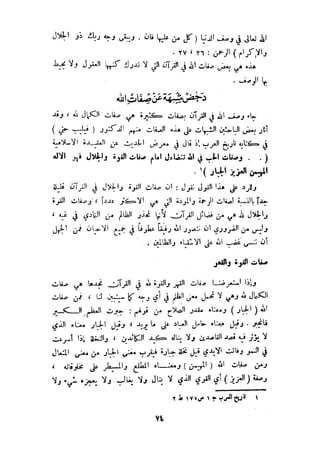 الله تعالى في وصف الدنيا ( كل من عليها فان . ويبقى وجه ربك ذو الجلال
والإكرام ) الرحمن : ٢٦ ، ٢٧ .
هذه هي بعض صفات الله في القرآن التي لا تدرك كنهها العقول ولا يحيط
بها الوصف .
دحض شبهة عن صفات الله
جاء وصف الله في القرآن بصفات كثيرة هي صفات لله الكمال ، وقد
أثار بعض الباحثين الشبهات على هذه الصفات منهم الدكتور ( حتي )
في كتابه تاريخ العرب إذ قال في معرض الحديث عن العقيدة الاسلامية
( . . وصفات الحب في الله تتضاءل امام صفات القوة والجلال فهو الاله
المهيمن العزيز الجبار )١ .
والرد على هذا القول نقول : ان صفات القوة والجلال في القرآن قليلة
جداً بالنسبة لصفات الرحمة والمودة التي هي الاكثر عدداً ، وصفات القوة
والجلال هي من فضائل القرآن لأنها تحذر الظالم من التمادي في غيه ،
وليس من الضروري ان نتصور الله رفيقاً عطوفاً في جميع الاحيان فمن الجهل
أن ننسى غضب الله على الاشقياء والظالمين .
صفات القوة والقهر
وإذا استعرضنا صفات القهر والقوة لله في القرآن نجدها هي صفات
الكمال لله وهي لا تحمل معنى الظلم في أي وجه كما سيتبين لنا ، فمن صفات
الله ( الجبار ) ومعناه مقدر الصلاح من قولهم : جبرت العظم الكسير
فانجبر . وقيل معناه حامل العباد على ما يريد ، وقيل الجبار معناه الذي
لا يؤثر فيه قصد القاصدين ولا يناله كيد الكائدين ، والنخلة إذا أسرعت
في السمو وفاتت الايدي قيل نخلة جبارة فيقرب معنى الجبار من معنى المتعال
ومن صفات الله ( المهيمن ) ومعناه المطلع والمسيطر على مخلوقاته ،
وصفة ( العزيز ) أي القوي الذي لا ينال ولا يغالب ولا يعجزه شيء ولا
١ تاريخ العرب ج ١ ص ١٧٧ ط ٢
٧٤